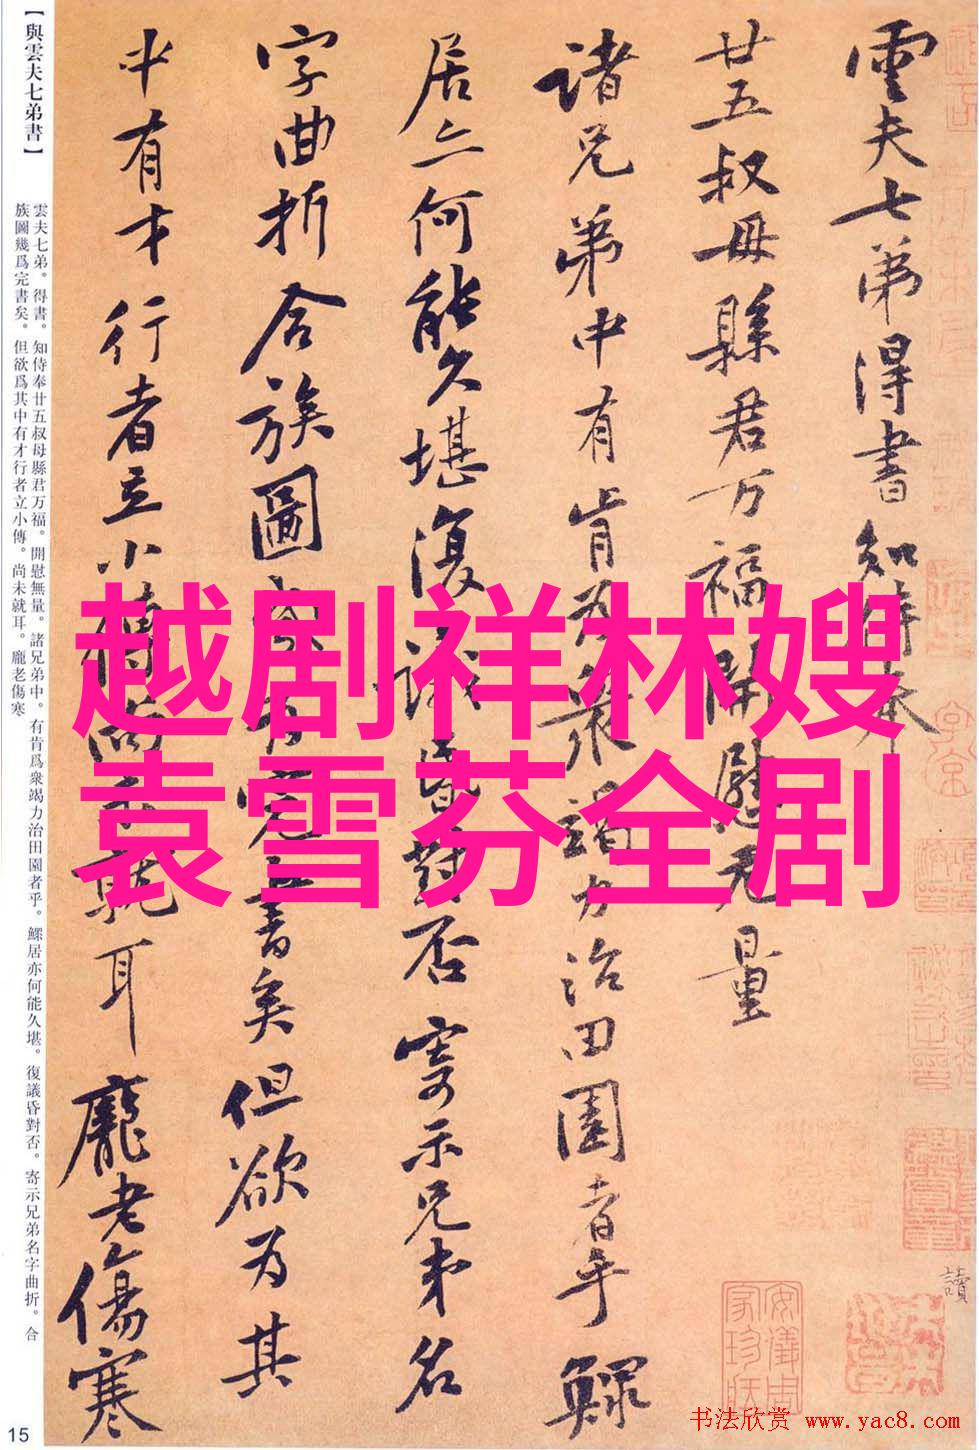 【與雲夫七弟書】
雲夫七弟。得書。知侍奉廿五叔母縣君万福。開慰無量。諸兄弟中。有肯爲衆竭力治田園者乎。鰥居亦何能久堪。復議昏對否。寄示兄弟名字曲折。合
族圖幾爲完書矣。但欲爲其中有才行者立小傳。尚未就耳。龐老傷寒
雲夫七弟得書知侍奉
廿五叔母縣君万福開慰无量
諸兄弟中有肯为衆竭力治田園者乎鰥
居亦何能久堪復議昏對否寄示兄弟名
字曲折合族圖完書矣但欲为其
中有才行者立小傳尚未就耳龐老傷寒
越剧祥林嫂
袁雪芬全剧
讀
15
书法欣赏 www.yac8.com